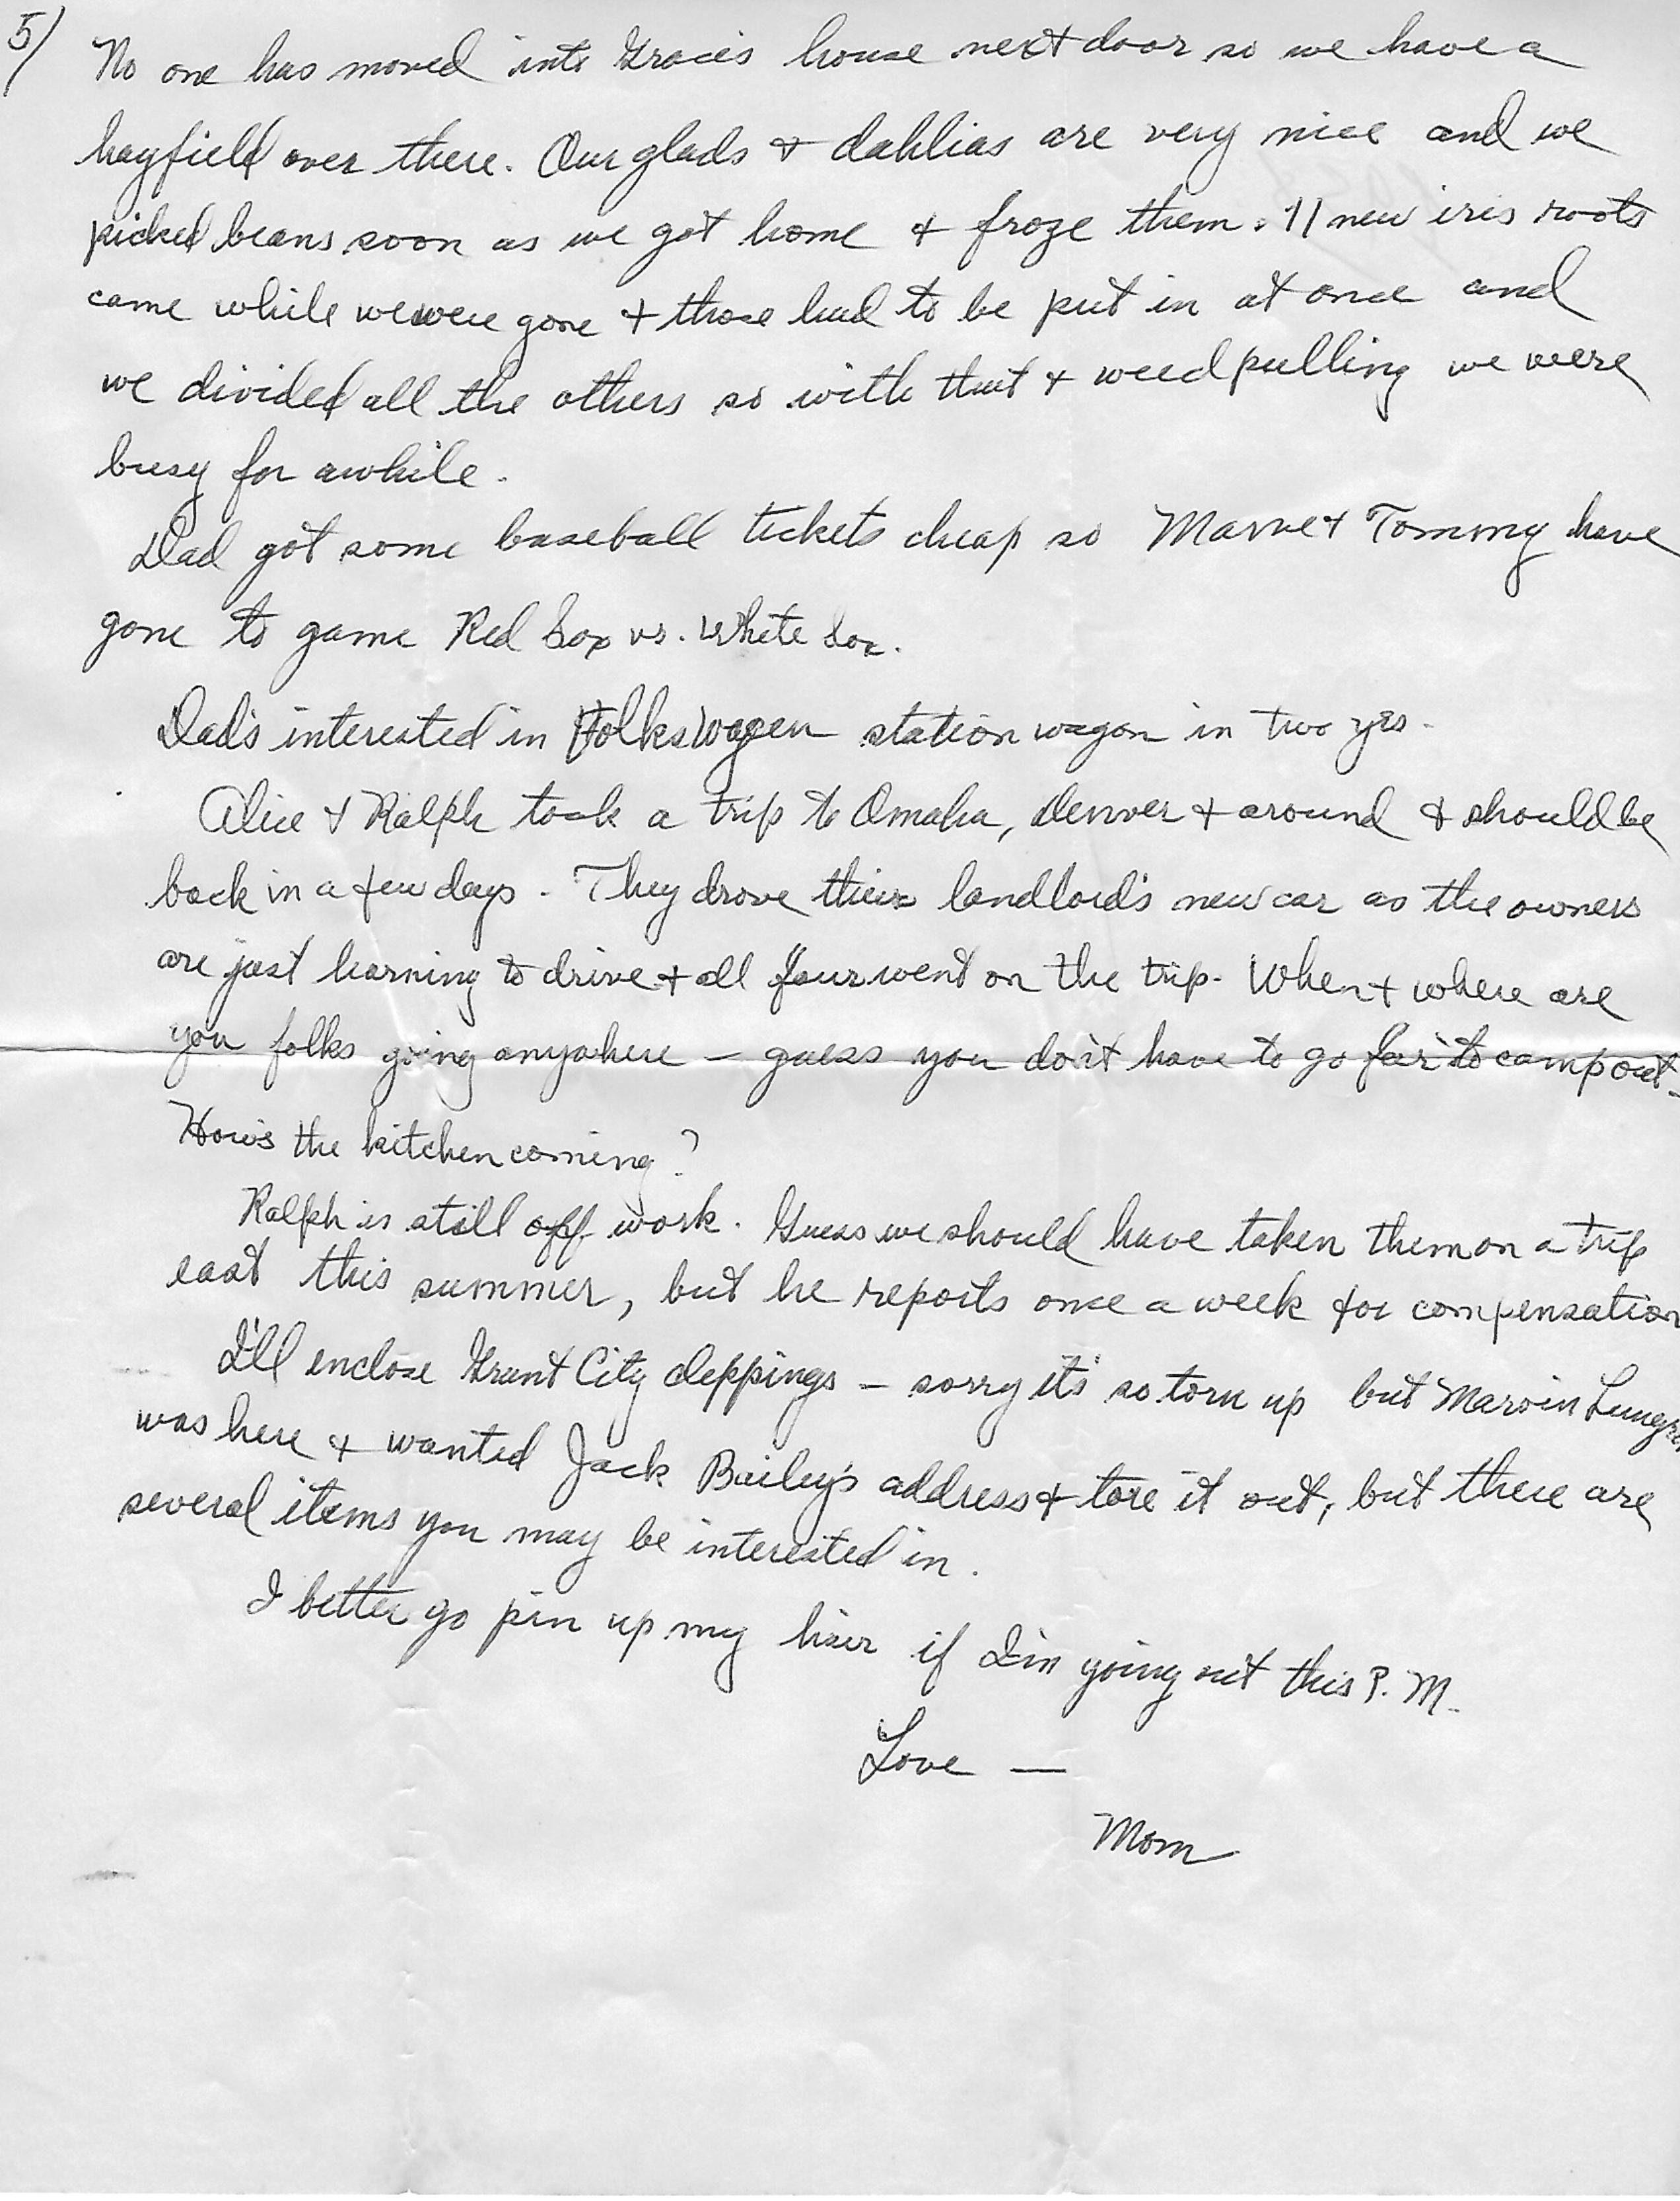 5/
No one has moved into Gracie's house next door so we have a
hayfield over there. Our glads + dahlias are very nice and we
picked beans soon as we got home + froze them. 11 new iris roots
came while we were gone + those had to be put in at once and
we divided all the others so with that + weed pulling we were
busy for awhile.
Dad got some baseball tickets cheap so Marve + Tommy have
gone to game Red Sox vs. White Sox.
Dad's interested in Volkswagen station wagon in two yrs.
Alice + Ralph took a trip to Omaha, Denver + around + should be
back in a few days. They drove their landlord's new car as the owners
are just learning to drive + all four went on the trip. When + where are
you folks going anywhere — guess you don't have to go far to camp out.
How's the kitchen coming?
Ralph is still off work. Guess we should have taken them on a trip
east this summer, but he reports once a week for compensation
I'll enclose Grant City clippings — sorry it's so torn up but Marvin
was here + wanted Jack Bailey's address + tore it out, but there are
several items you may be interested in.
I better go pin up my hair if I'm going out this P.M.
Love —
Mom